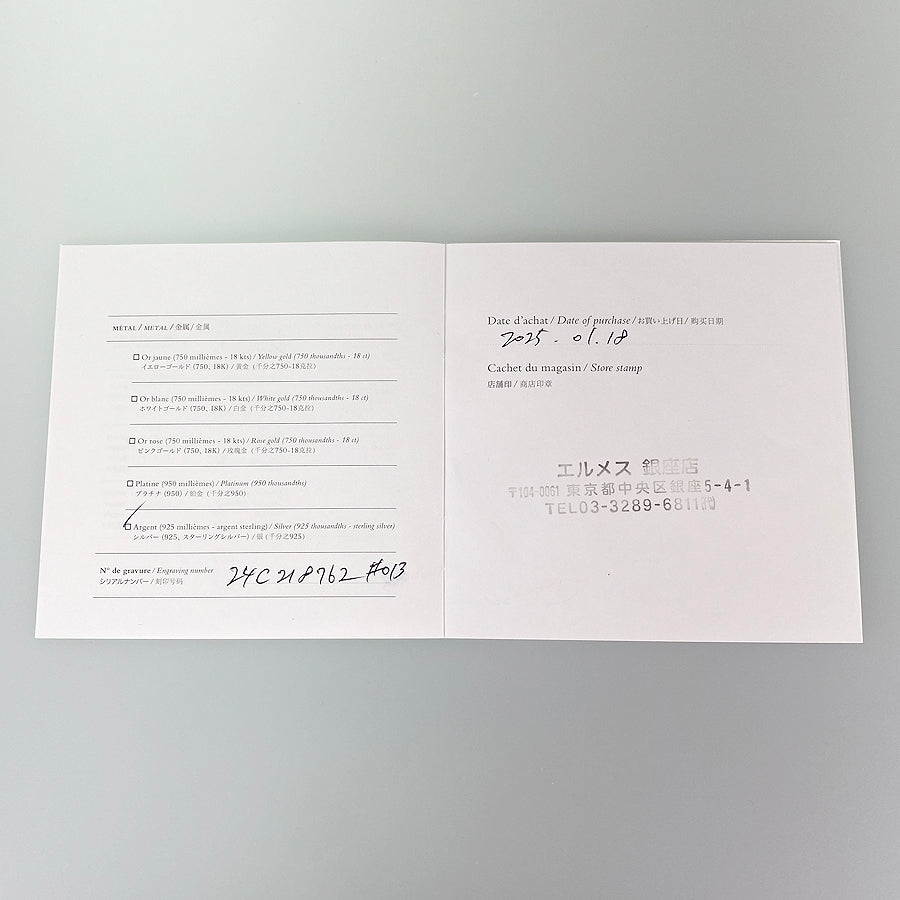 MÉTAL / METAL / 金属 / 金属
Or jaune (750 millièmes - 18 kts) / Yellow gold (750 thousandths - 18 ct)
イエローゴールド (750、18K) / 黃金 (千分之750-18克拉)
Or blanc (750 millièmes - 18 kts) / White gold (750 thousandths - 18 ct)
ホワイトゴールド (750、18K) / 白金 (千分之750-18克拉)
Or rose (750 millièmes - 18 kts) / Rose gold (750 thousandths - 18 ct)
ピンクゴールド (750、18K) / 玫瑰金 (千分之750-18克拉)
Platine (950 millièmes) / Platinum (950 thousandths)
プラチナ (950) / 铂金 (千分之950)
Argent (925 millièmes - argent sterling) / Silver (925 thousandths - sterling silver)
シルバー (925、スターリングシルバー) / 银 (千分之925)
N° de gravure / Engraving number
シリアルナンバー / 刻印号码
24C218762 #013
Date d'achat / Date of purchase / お買い上げ日 / 购买日期
2025.01.18
Cachet du magasin / Store stamp
店舗印 / 商店印章
エルメス 銀座店
〒104-0061 東京都中央区銀座5-4-1
TEL03-3289-6811㈹